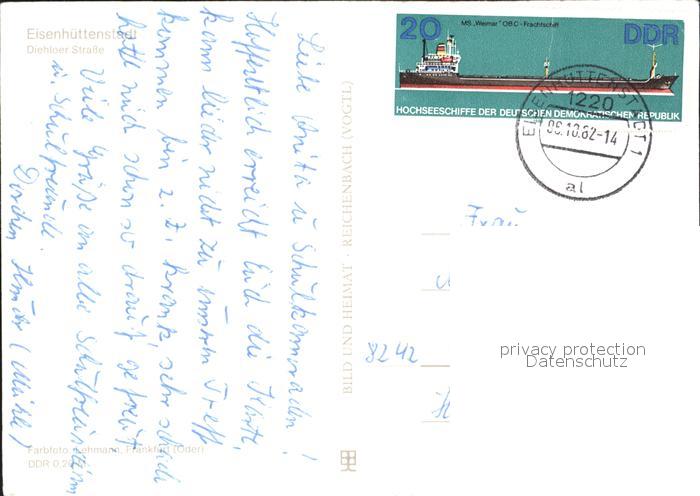 Eisenhüttenstadt
Diehloer Straße
Liebe Anita u. Schulkameraden!
Hoffentlich erreicht Euch die Karte,
kann leider nicht zu unserem Treff
kommen bin z. Zt. krank, sehr schade
hatte mich schon so drauf gefreut
Viele Grüße an alle Schulfreundinnen
u. Schulfreunde.
Dorchen
Farbfoto: Lehmann, Frankfurt (Oder)
DDR 0,20
BILD UND HEIMAT · REICHENBACH (VOGTL)
20 MS „Weimar" OBC - Frachtschiff DDR
HOCHSEESCHIFFE DER DEUTSCHEN DEMOKRATISCHEN REPUBLIK
EISENHÜTTENSTADT 1
1220
06.10.82-14
al
Frau
8242
privacy protection
Datenschutz